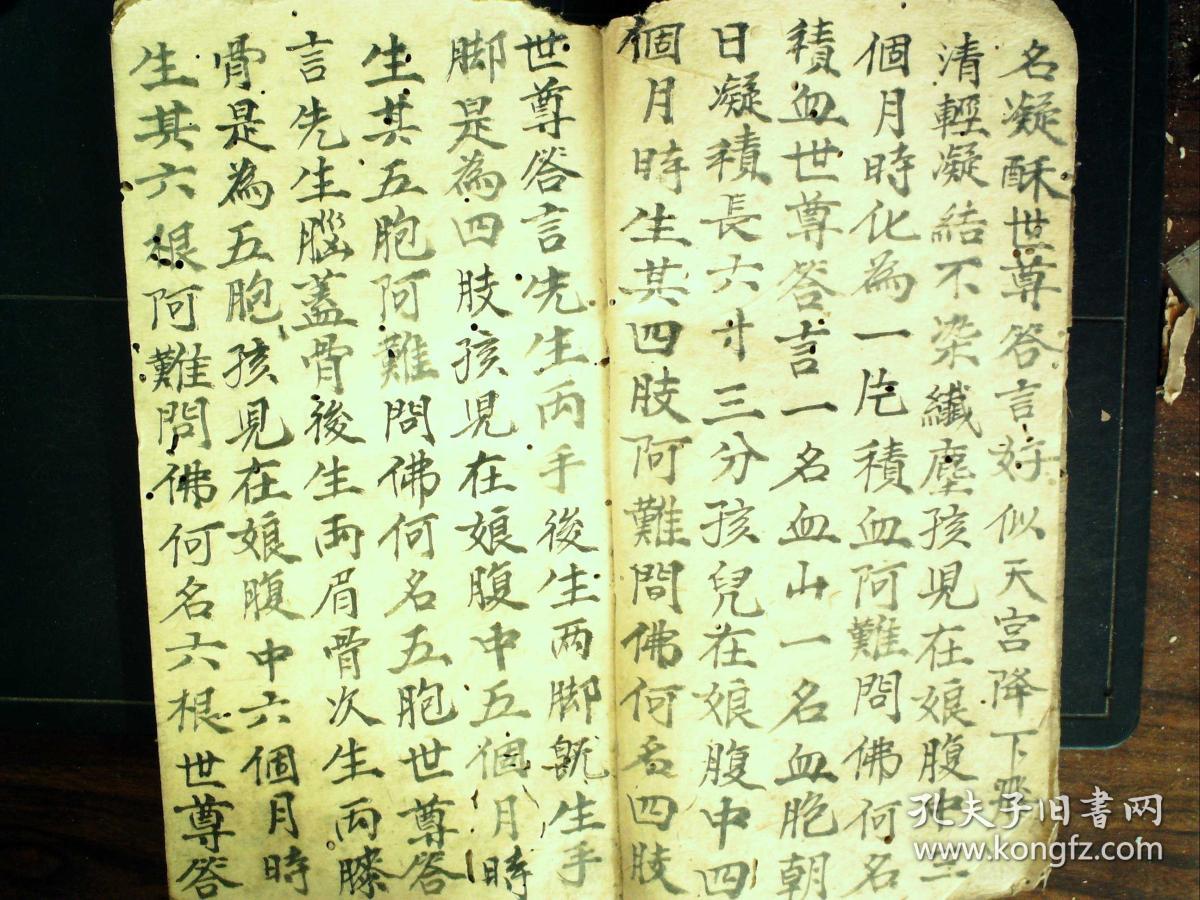 名凝酥世尊答言好似天宮降下
清輕凝結不染纖塵孩児在娘腹中三
個月時化為一片積血阿難問佛何名
積血世尊答言一名血山一名血胞朝
日凝積長六寸三分孩兒在娘腹中四
個月時生其四肢阿難問佛何名四肢
世尊答言先生両手後生两脚既生手
脚是為四肢孩児在娘腹中五個月時
生其五胞阿難問佛何名五胞世尊答
言先生腦蓋骨後生両眉骨次生两膝
骨是為五胞孩児在娘腹中六個月時
生其六根阿難問佛何名六根世尊答
孔夫子旧书网
www.kongfz.com